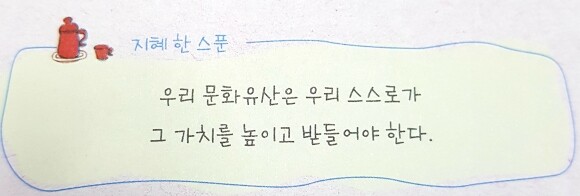 지혜 한 스푼
우리 문화유산은 우리 스스로가
그 가치를 높이고 받들어야 한다.